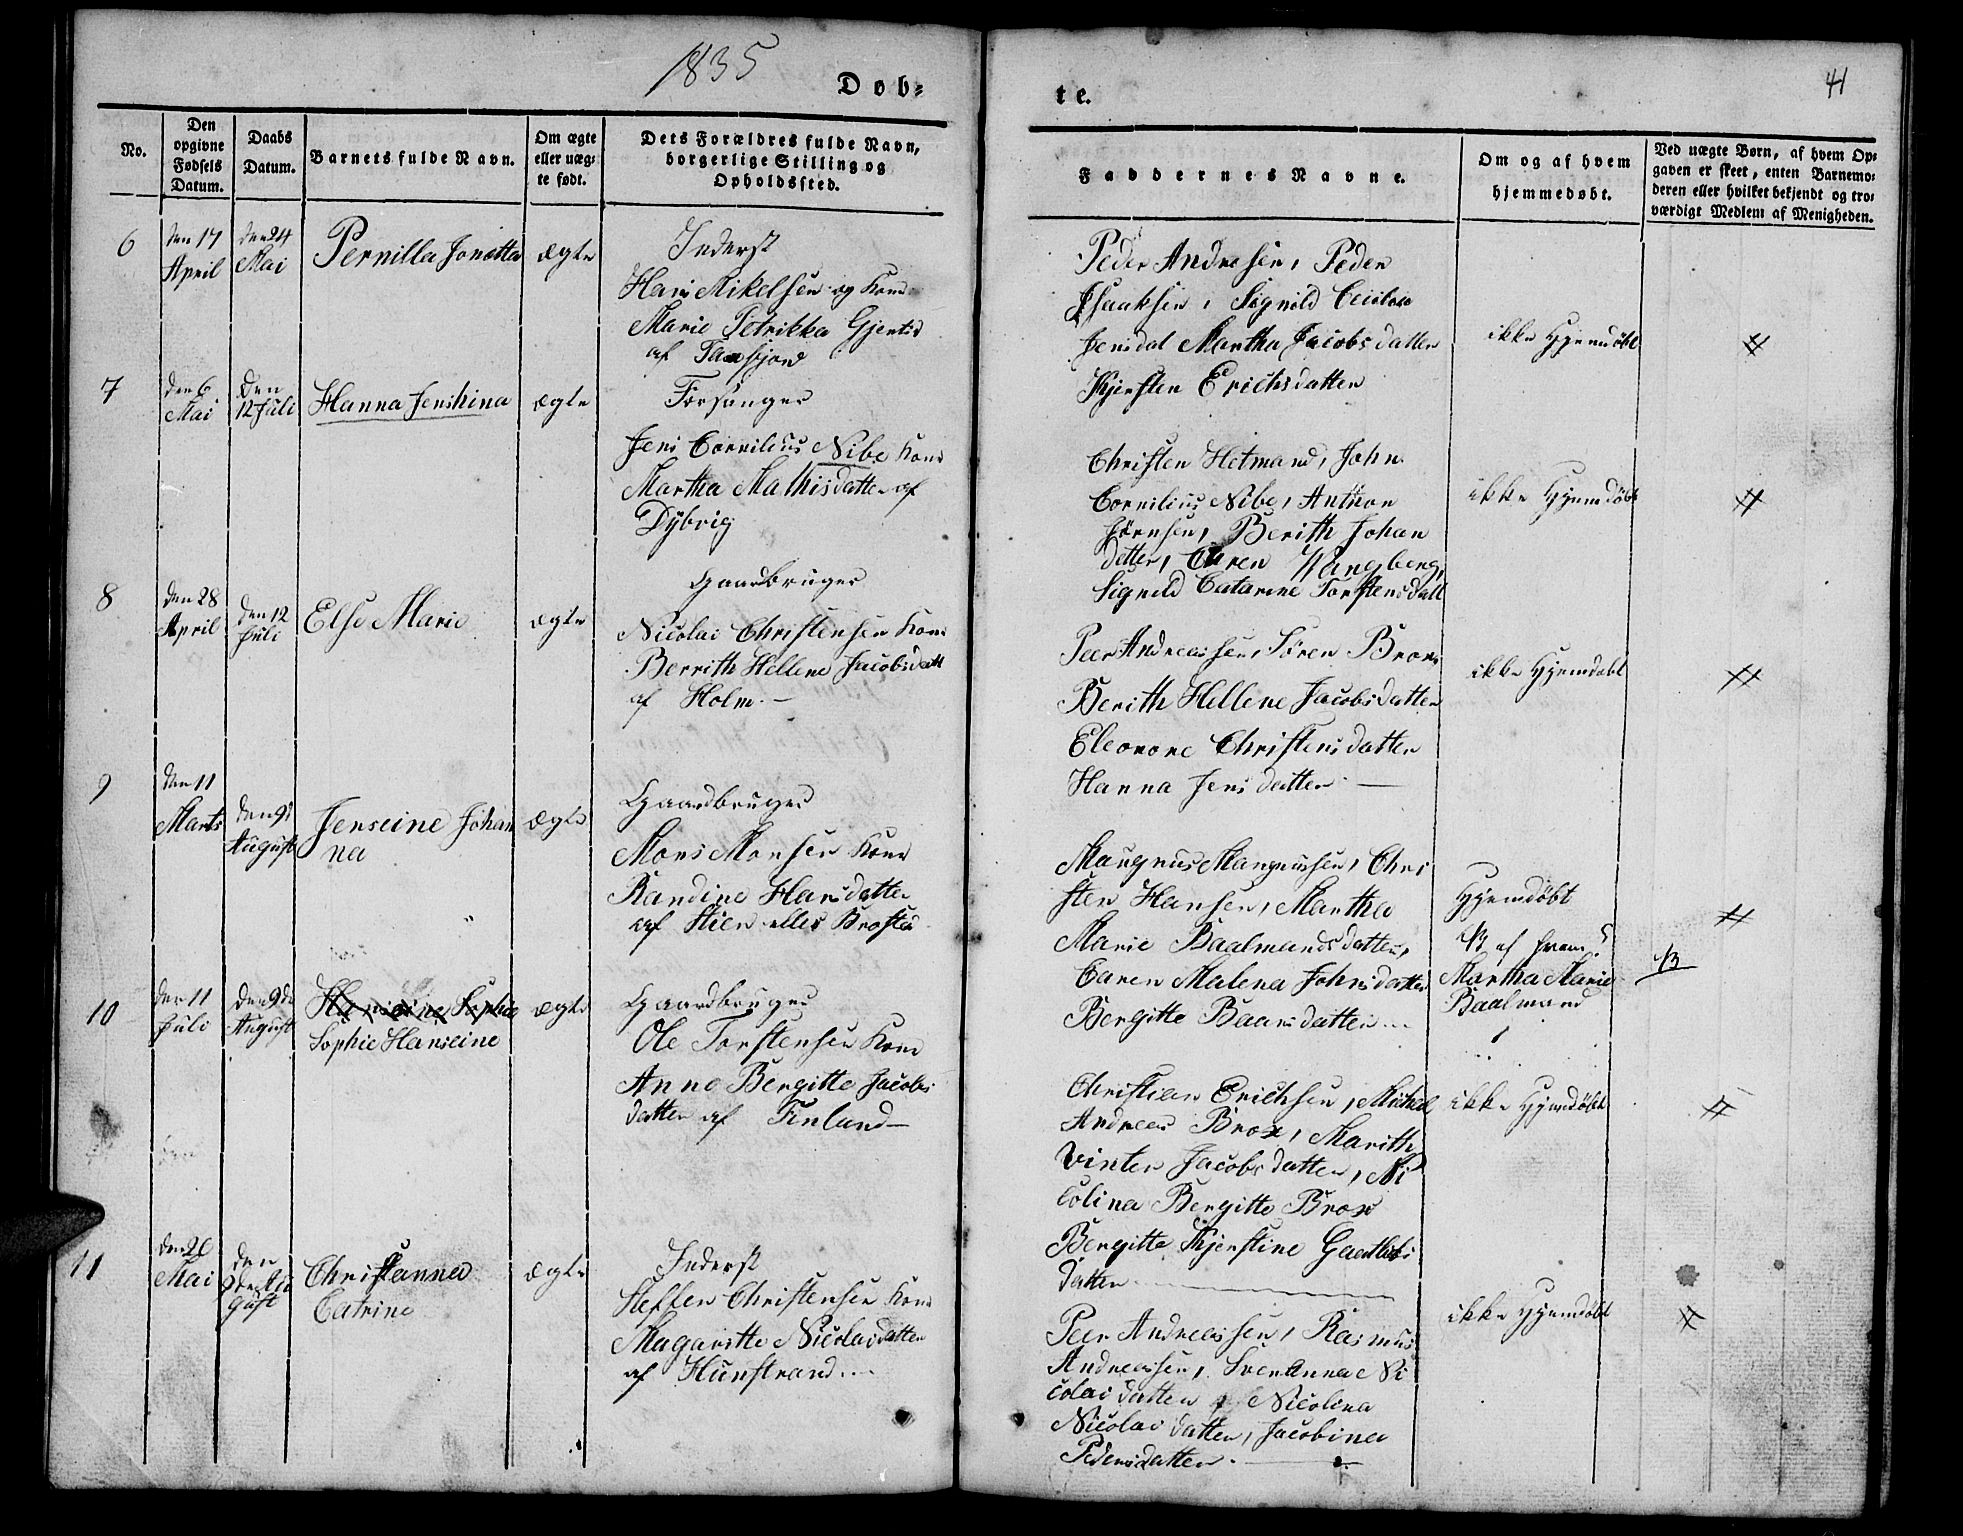 1835
Døb=
te.
41
No.
Den
opgivne
Fødsels
Datum.
Daabs
Datum.
Barnets fulde Navn.
Om ægte
eller uæg-
te født.
Dets Forældres fulde Navn,
borgerlige Stilling og
Opholdssted.
Faddernes Navne.
Om og af hvem
hjemmedøbt.
Ved uægte Børn, af hvem Op-
gaven er skeet, enten Barnemo-
deren eller hvilket bekjendt og tro-
værdigt Medlem af Menigheden.
6
den 17
April
den 24
Mai
Pernilla Jonetta
ægte
Inderst
Hans Mikelsen og Kone
Marie Petrikka
af
Peder Andresen, Peder
Isaaksen, Signild
Jensdat Martha Jacobsdatter
Kjersten Erichsdatter
ikke Hjemdøbt
7
den 6
Mai
Den
12 Juli
Hanna Jenshina
ægte
Forsanger
Jens Cornilius Nibe Kone
Martha Mathisdatter af
Dybvig
Christen Hetmand, John
Cornilius Nibe, Anthon
Jörnsen, Berith Johan
datter, Caren Wangberg,
Signild Catarine Torstensdatt
ikke Hjemdøbt
8
den 28
April
den 12
Juli
Else Marie
ægte
Gaardbruger
Nicolai Christensen Kone
Berrith Hellene Jacobsdatt
af Holm. —
Peer Andreassen, Søren Brox
Berith Hellene Jacobsdatter
Eleonore Christensdatter
Hanna Jensdatter —
ikke Hjemdøbt
9
den 11
Marts
den 9d
August
Jenseine Johan
na
ægte
Gaardbruger
Mons Monsen Kone
Randine Hansdatter
af Stien eller Brosted
Maugnus Mangnussen, Chri
sten Hansen, Martha
Marie Baalmandsdatter,
Caren Malena Johnsdatter
Bergitte Baarsdatter
Hjemdøbt
af hvem?
Martha Marie
Baalmand
10
den 11
Juli
den 9de
August
Sophie Hanseine
ægte
Gaardbruger
Ole Torstensen Kone
Anne Bergitte Jacobs
datter af Finland —
Christian Erichsen, Michel
Andreas Brox, Marith
Vinter Jacobsdatter, Ni
colina Bergitte Brox
Bergitte Kjerstine
datter
ikke Hjemdøbt
11
den 26
Mai
den
gust
Christanna
Catrine
ægte
Inderst
Steffen Christensen Kone
Magaritte Nicolaidatter
af Hunstrand
Peer Andreassen, Rasmus
Andreassen, Svenanna Ni
colai datter Nicolina
Nicolai datter, Jacobina
Pedersdatter. —
ikke Hjemdøbt